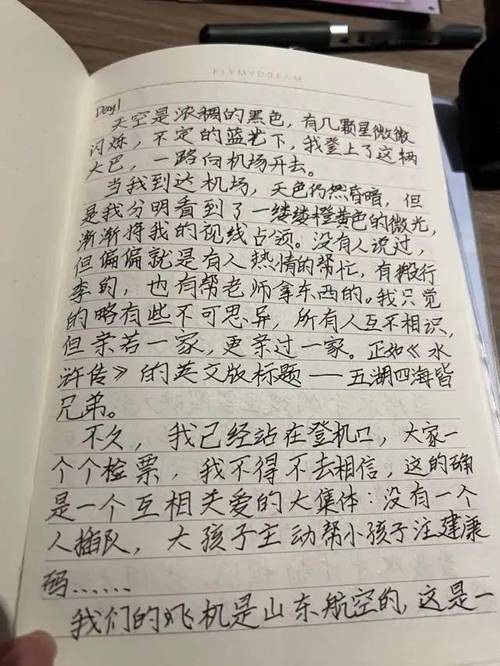 FLYMYDREAM
Day1
天空是浓稠的黑色，有几颗星微微
闪烁，不定的蓝光下，我登上了这辆
大巴，一路向机场开去。
当我到达机场，天色仍然昏暗，但
是我分明看到了一缕缕橙黄色的微光，
渐渐将我的视线占领。没有人说过，
但偏偏就是有人热情的帮忙，有搬行
李的，也有帮老师拿东西的。我只觉
的略有些不可思异，所有人互不相识，
但亲若一家，更亲过一家。正如《水
浒传》的英文版标题——五湖四海皆
兄弟。
不久，我已经站在登机口，大家一
个个检票，我不得不去相信，这的确
是一个互相关爱的大集体：没有一个
人插队，大孩子主动帮小孩子注建康
码……
我们的飞机是山东航空的，这是一